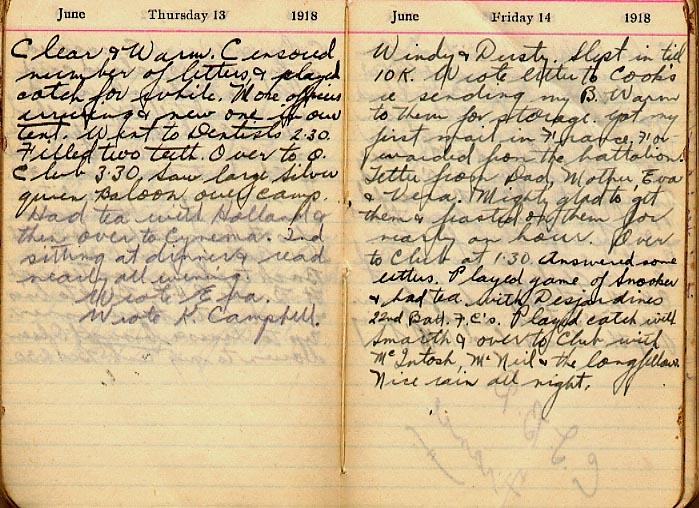 June Thursday 13 1918
Clear & Warm. Censored
number of letters, & played
catch for awhile. More officers
arriving & new one in our
tent. Went to Dentists 2.30.
Filled two teeth. Over to O.
Club 3.30, Saw large Silver
queer Baloon over camp.
Had tea with Holland &
then over to Cynema. 2nd
sitting at dinner & read
nearly all evening.
Wrote Eva.
Wrote K. Campbell.
June Friday 14 1918
Windy & Dusty. Slept in till
10 K. Wrote letter to Cooks
re sending my B. Warm
to them for storage. got my
first mail in France, For-
warded from the battalion.
Letter from Dad, Mother, Eva
& Vera. Mighty glad to get
them & feasted on them for
nearly an hour. Over
to Club at 1.30. Answered some
letters. Played game of Snooker
& had tea with Desjardines
22nd Batt. F.C's. Played catch with
Smarth & over to Club with
McIntosh, McNeil & the longfellow.
Nice rain all night.